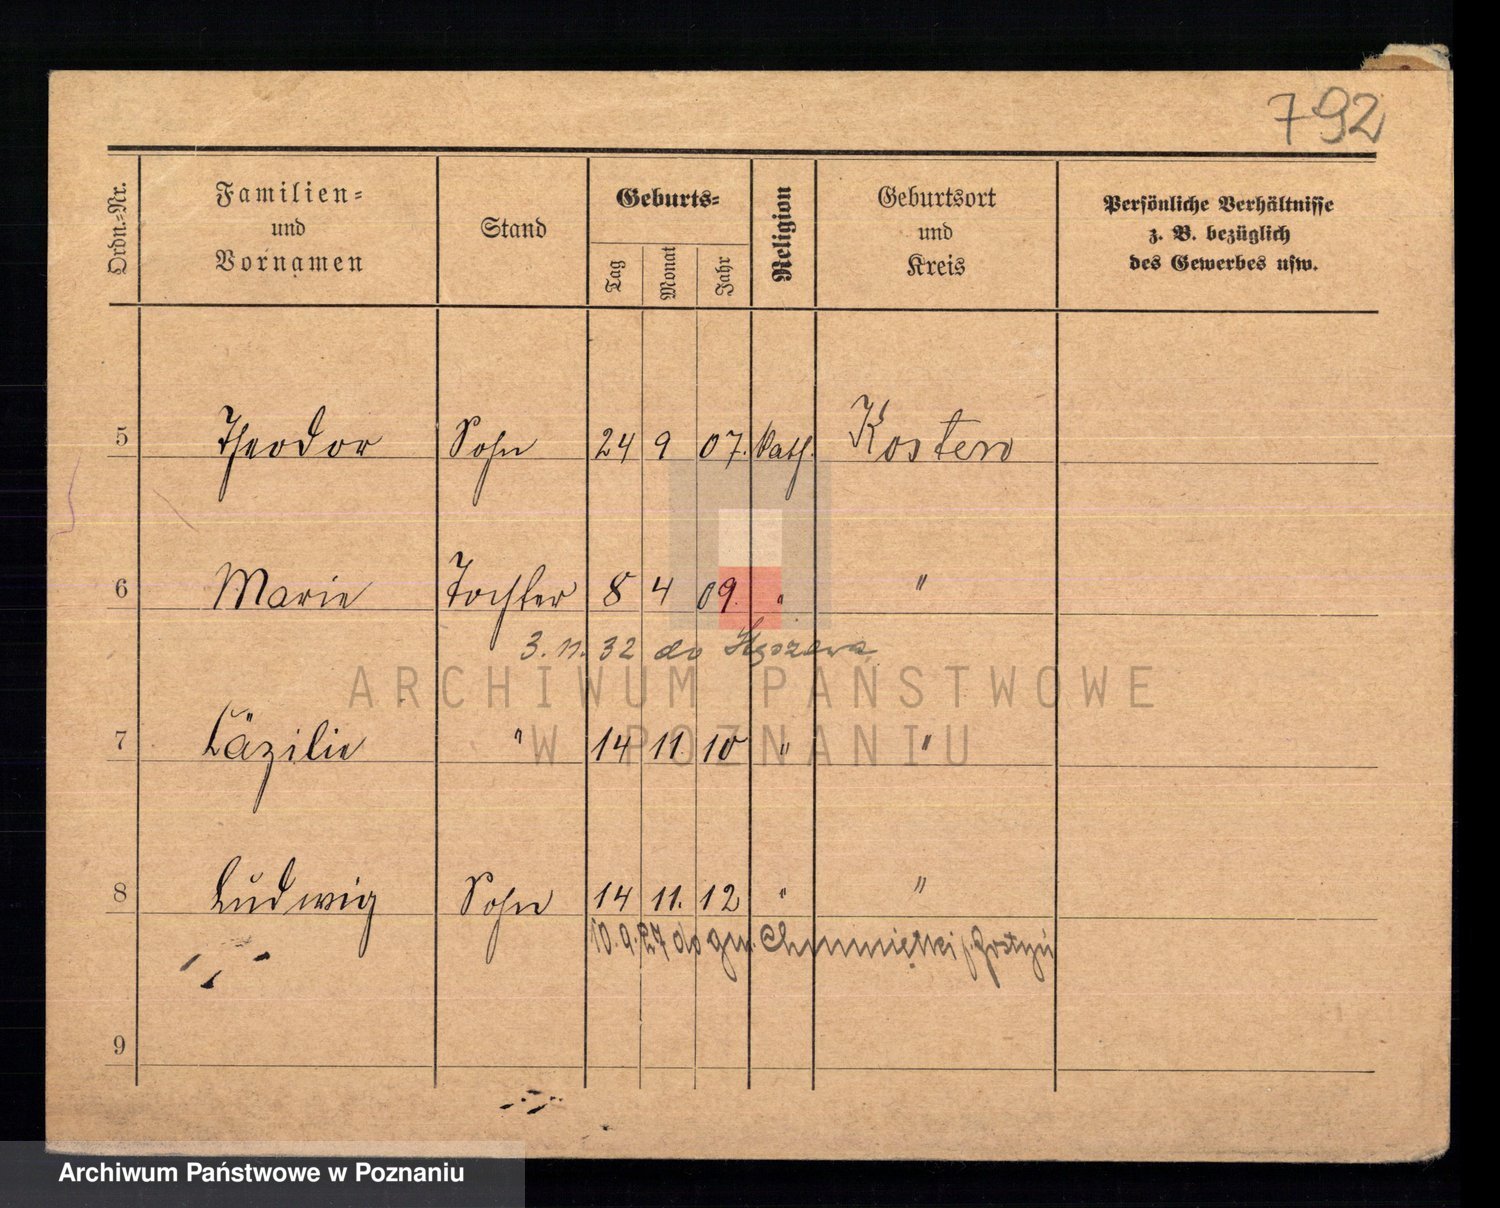 792
Ordn.=Nr.
Familien=
und
Vornamen
Stand
Geburts=
Tag
Monat
Jahr
Religion
Geburtsort
und
Kreis
Persönliche Verhältnisse
z. B. bezüglich
des Gewerbes usw.
5 Theodor Sohn 24 9 07. kath. Kosten
6 Marie Tochter 8 4 09. " "
3. 11. 32 do
ARCHIWUM PAŃSTWOWE
W POZNANIU
7 Cäzilie " 14 11. 10 " "
8 Ludwig Sohn 14 11. 12 " "
10. 9. 27 do gm.
9
Archiwum Państwowe w Poznaniu